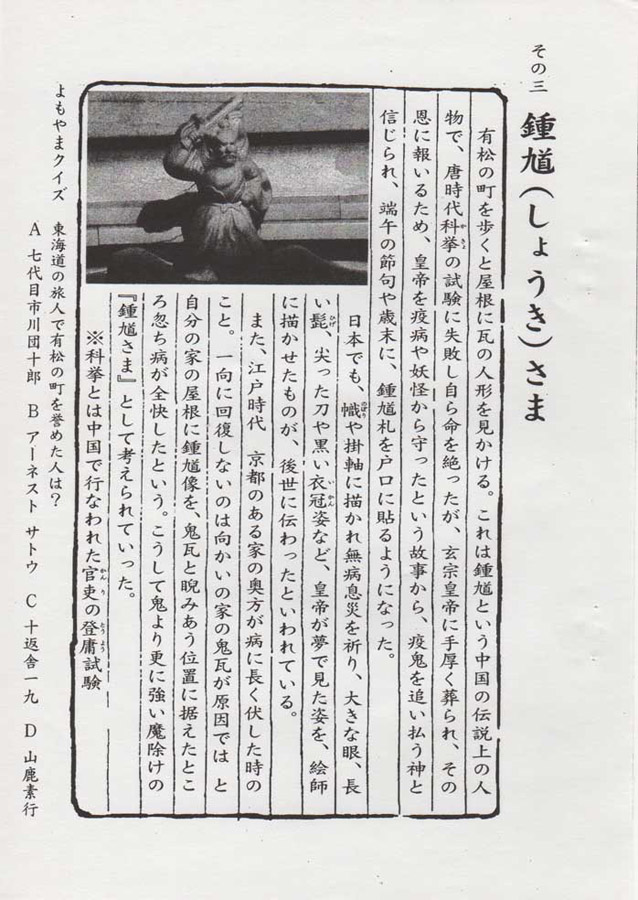 その三　鍾馗(しょうき)さま
有松の町を歩くと屋根に瓦の人形を見かける。これは鍾馗という中国の伝説上の人
物で、唐時代科挙の試験に失敗し自ら命を絶ったが、玄宗皇帝に手厚く葬られ、その
恩に報いるため、皇帝を疫病や妖怪から守ったという故事から、疫鬼を追い払う神と
信じられ、端午の節句や歳末に、鍾馗札を戸口に貼るようになった。
日本でも、幟や掛軸に描かれ無病息災を祈り、大きな眼、長
い髭、尖った刀や黒い衣冠姿など、皇帝が夢で見た姿を、絵師
に描かせたものが、後世に伝わったといわれている。
また、江戸時代　京都のある家の奥方が病に長く伏した時の
こと。一向に回復しないのは向かいの家の鬼瓦が原因では　と
自分の家の屋根に鍾馗像を、鬼瓦と睨みあう位置に据えたとこ
ろ忽ち病が全快したという。こうして鬼より更に強い魔除けの
『鍾馗さま』として考えられていった。
※科挙とは中国で行なわれた官吏の登庸試験
よもやまクイズ　東海道の旅人で有松の町を誉めた人は?
A 七代目市川団十郎　B アーネスト サトウ　C 十返舎一九　D 山鹿素行